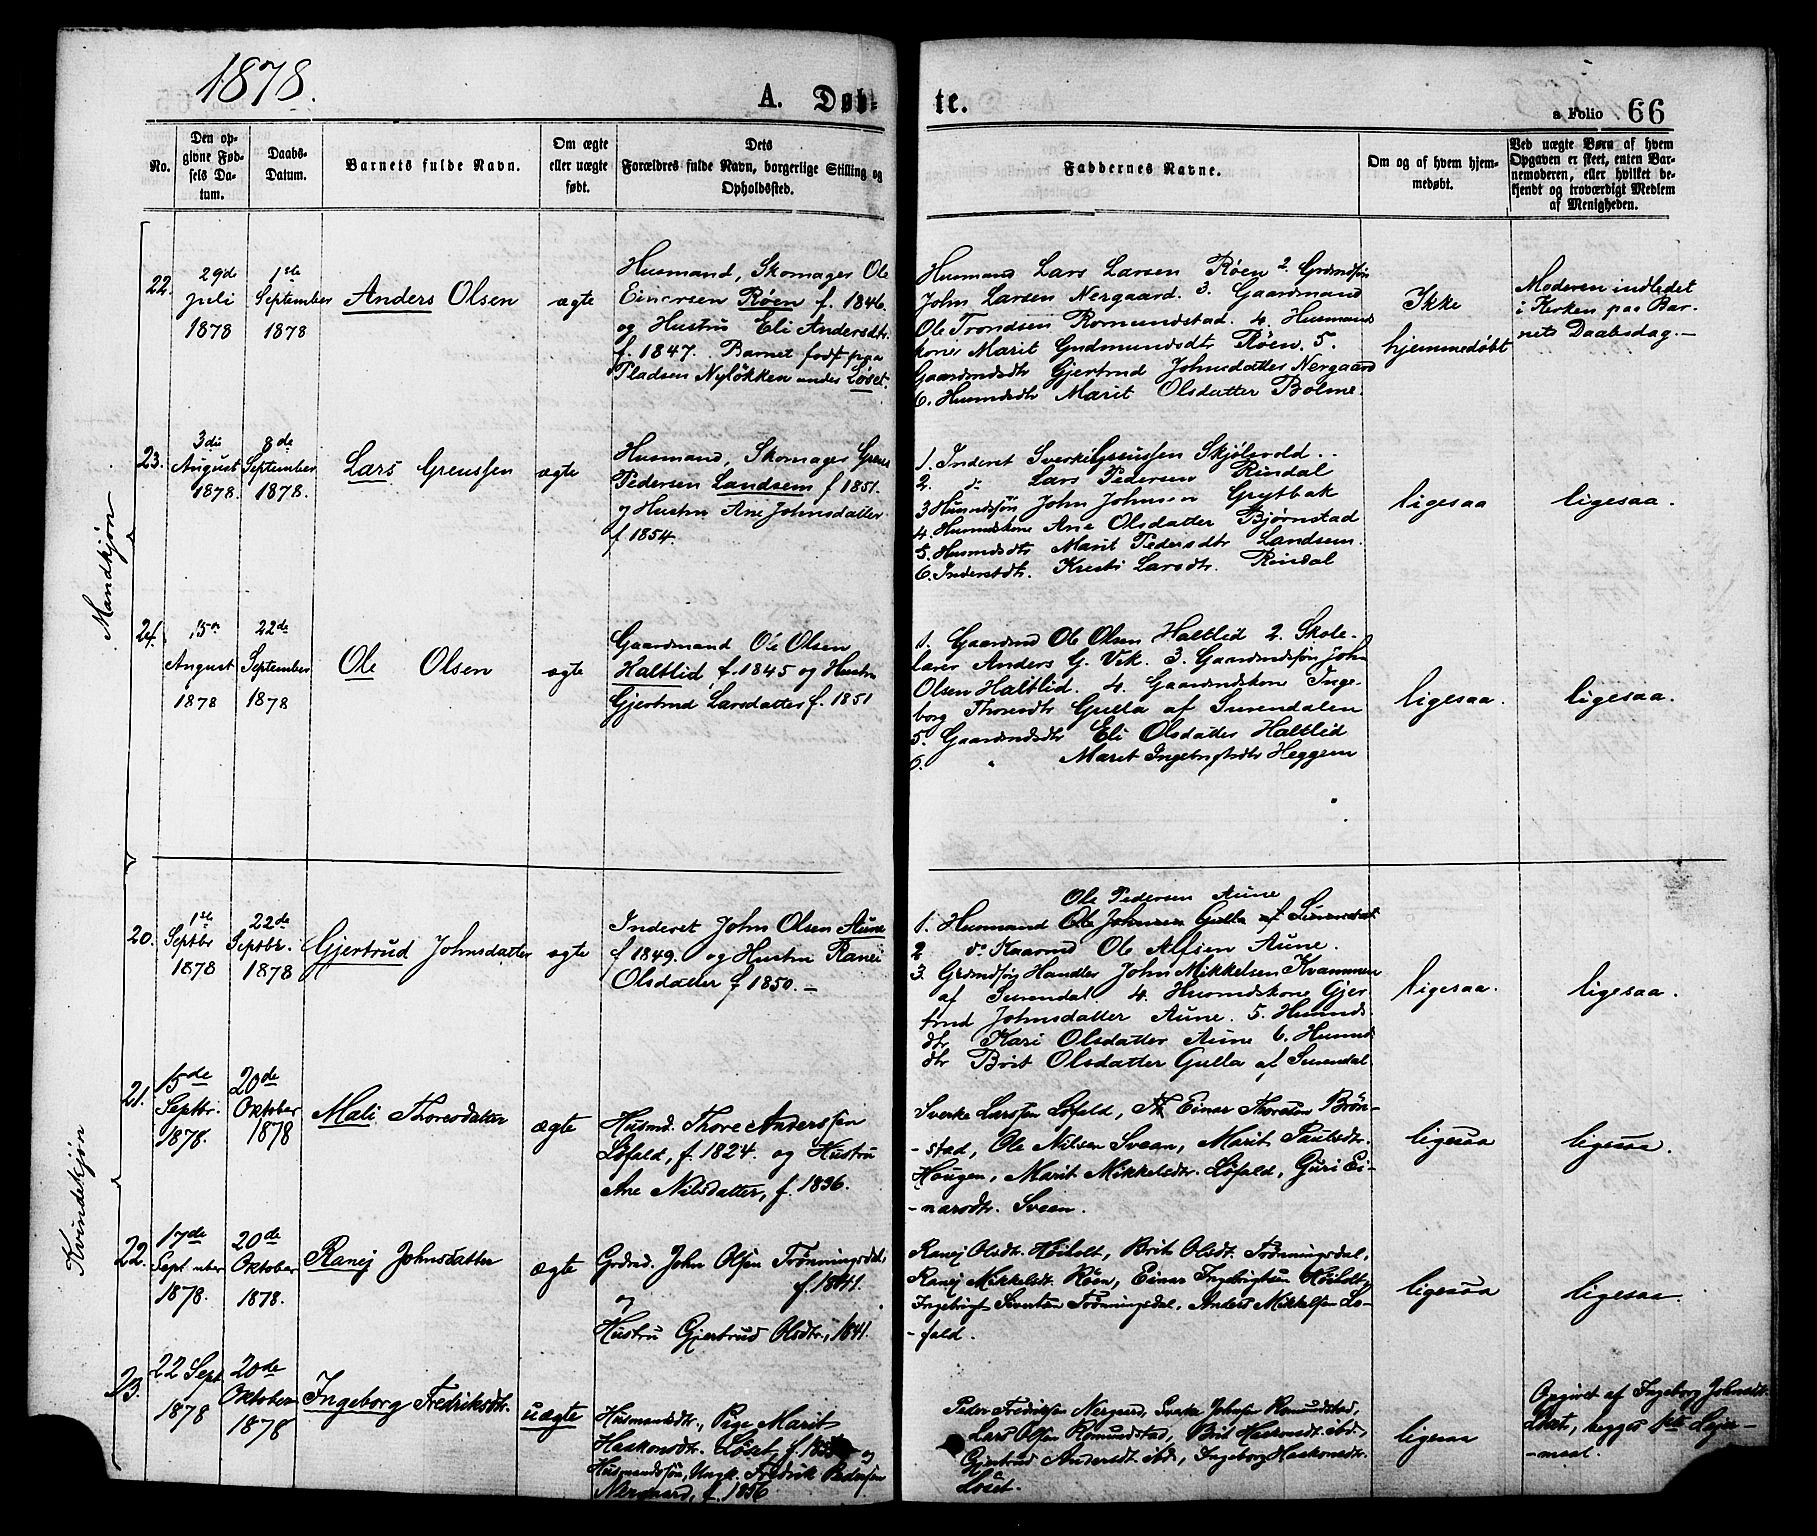 1878.
A. Døb-
te.
a Folio 66
No.
Den op-
givne Fød-
sels Da-
tum.
Daabs-
Datum.
Barnets fulde Navn.
Om ægte
eller uægte
født.
Dets
Forældres fulde Navn, borgerlige Stilling og
Opholdssted.
Faddernes Navne.
Om og af hvem hjem-
medøbt.
Ved uægte Børn af hvem
Opgaven er skeet, enten Bar-
nemoderen, eller hvilket be-
kjendt og troværdigt Medlem
af Menigheden.
Mandkjøn
22.
29de
juli
1878
1ste
September
1878
Anders Olsen
ægte
Husmand, Skomager Ole
Einersen Røen f. 1846.
og Hustru Eli Andersdtr.
f. 1847. Barnet født paa
Pladsen Nyløkken under Løset.
Husmand Lars Larsen Røen 2. Grdmdsøn
John Larsen Nergaard. 3. Gaardmand
Ole Trondsen Romundstad. 4. Husmands
kone Marit Gudmundsdtr Røen. 5.
Gaardmdsdtr Gjertrud Johnsdatter Nergaard
6. Husmdsdtr Marit Olsdatter Bolme.
Ikke
hjemmedøbt
Moderen indledet
i Kirken paa Bar-
nets Daabsdag.-
23.
3die
August
1878.
8de
September
1878.
Lars Grenssen
ægte
Husmand, Skomager
Pedersen Landsem f 1851.
og Hustru Ane Johnsdatter
f. 1854.
1. Inderst Sverke Skjølsvold..
2. do Lars Pedersen Rindal
3 Husmdssøn John Johnsen Grytbak
4. Husmdskone Ane Olsdatter Bjørnstad
5. Husmdsdtr Marit Pedersdtr Landsem.
6. Inderstdtr. Kristi Larsdtr. Rindal
ligesaa
ligesaa.
24.
15de
August
1878
22de
September
1878
Ole Olsen
ægte
Gaardmand Ole Olsen
Haltlid, f. 1845 og Hustru
Gjertrud Larsdatter f. 1851
1. Gaardmd Ole Olsen Haltlid 2. Skole-
lærer Anders G. Vik. 3. Gaardmdssøn John
Olsen Haltlid. 4. Gaardmdskone Inge-
borg Thoresdtr Gulla af Surendalen
5. Gaardmdsdtr Eli Olsdatter Haltlid
6. " Marit Ingebrigtsdtr Heggem
ligesaa.
ligesaa.
Kvindekjøn
20.
1ste
Septbr
1878
22de
Septbr.
1878
Gjertrud Johnsdatter
ægte
Inderst John Olsen Aune
f 1849. og Hustru Ranei
Olsdatter f 1850.-
Ole Pedersen Aune
1. Husmand Ole Johnsen Gulla af Surendal
2 do Ole Alfsen Aune.
3. Grdmdsøn Handler John Mikkelsen Kvammen
af Surendal 4. Husmdskone Gjer
trud Johnsdatter Aune. 5. Husmds
dtr Kari Olsdatter Aune 6. Husmds
dtr Brit Olsdatter Gulla af Surendal
ligesaa.
ligesaa.
21.
15de
Septbr.
1878.
20de
Oktober
1878
Mali Thoresdatter
ægte
Husmd. Thore Anderssen
Løfald, f. 1824. og Hustru
Ane Nilsdatter, f. 1836.
Sverke Larssen Løfald, Einar Thoresen Brøn-
-stad, Ole Nilsen Sveen, Marit Paulsdtr.
Haugen, Marit Mikkelsdtr. Løfald, Guri Ei-
-narsdtr. Sveen.
ligesaa
ligesaa.
22.
17de
September
1878.
20de
Oktober
1878.
Ranej Johnsdatter
ægte
Grdmd. John Olsen Trønningsdal,
f. 1841.
og
Hustru Gjertrud Olsdtr., 1841.
Ranej Olsdt. Høiholt, Brit Olsdt. Trønningsdal,
Ranej Mikkelsdt. Røen, Einar Ingebrigtsen Høiholt,
Ingebrigt Sivertsen Trønningsdal, Anders Mikkelsen Lø-
-fald.
ligesaa
ligesaa.
23.
22 Sept
1878
20de
Oktober
1878
Ingeborg Fredriksdtr.
uægte
Husmandsdtr., Pige Marit
Haakonsdtr. Løset, f. og
Husmandssøn, Ungk. Fredrik Pedersen
Nergaard, f. 1856
Peder Fredriksen Nergaard, Sverke Johnsen Romundstad,
Lars Olsen Romundstad, Brit Haakonsdt. ibd.,
Gjertrud Andersdt. ibd., Ingeborg Haakonsdtr.
Løset.
ligesaa
Opgivet af Ingeborg Johnsdtr.
Løset, begges 1ste Leier-
-maal.